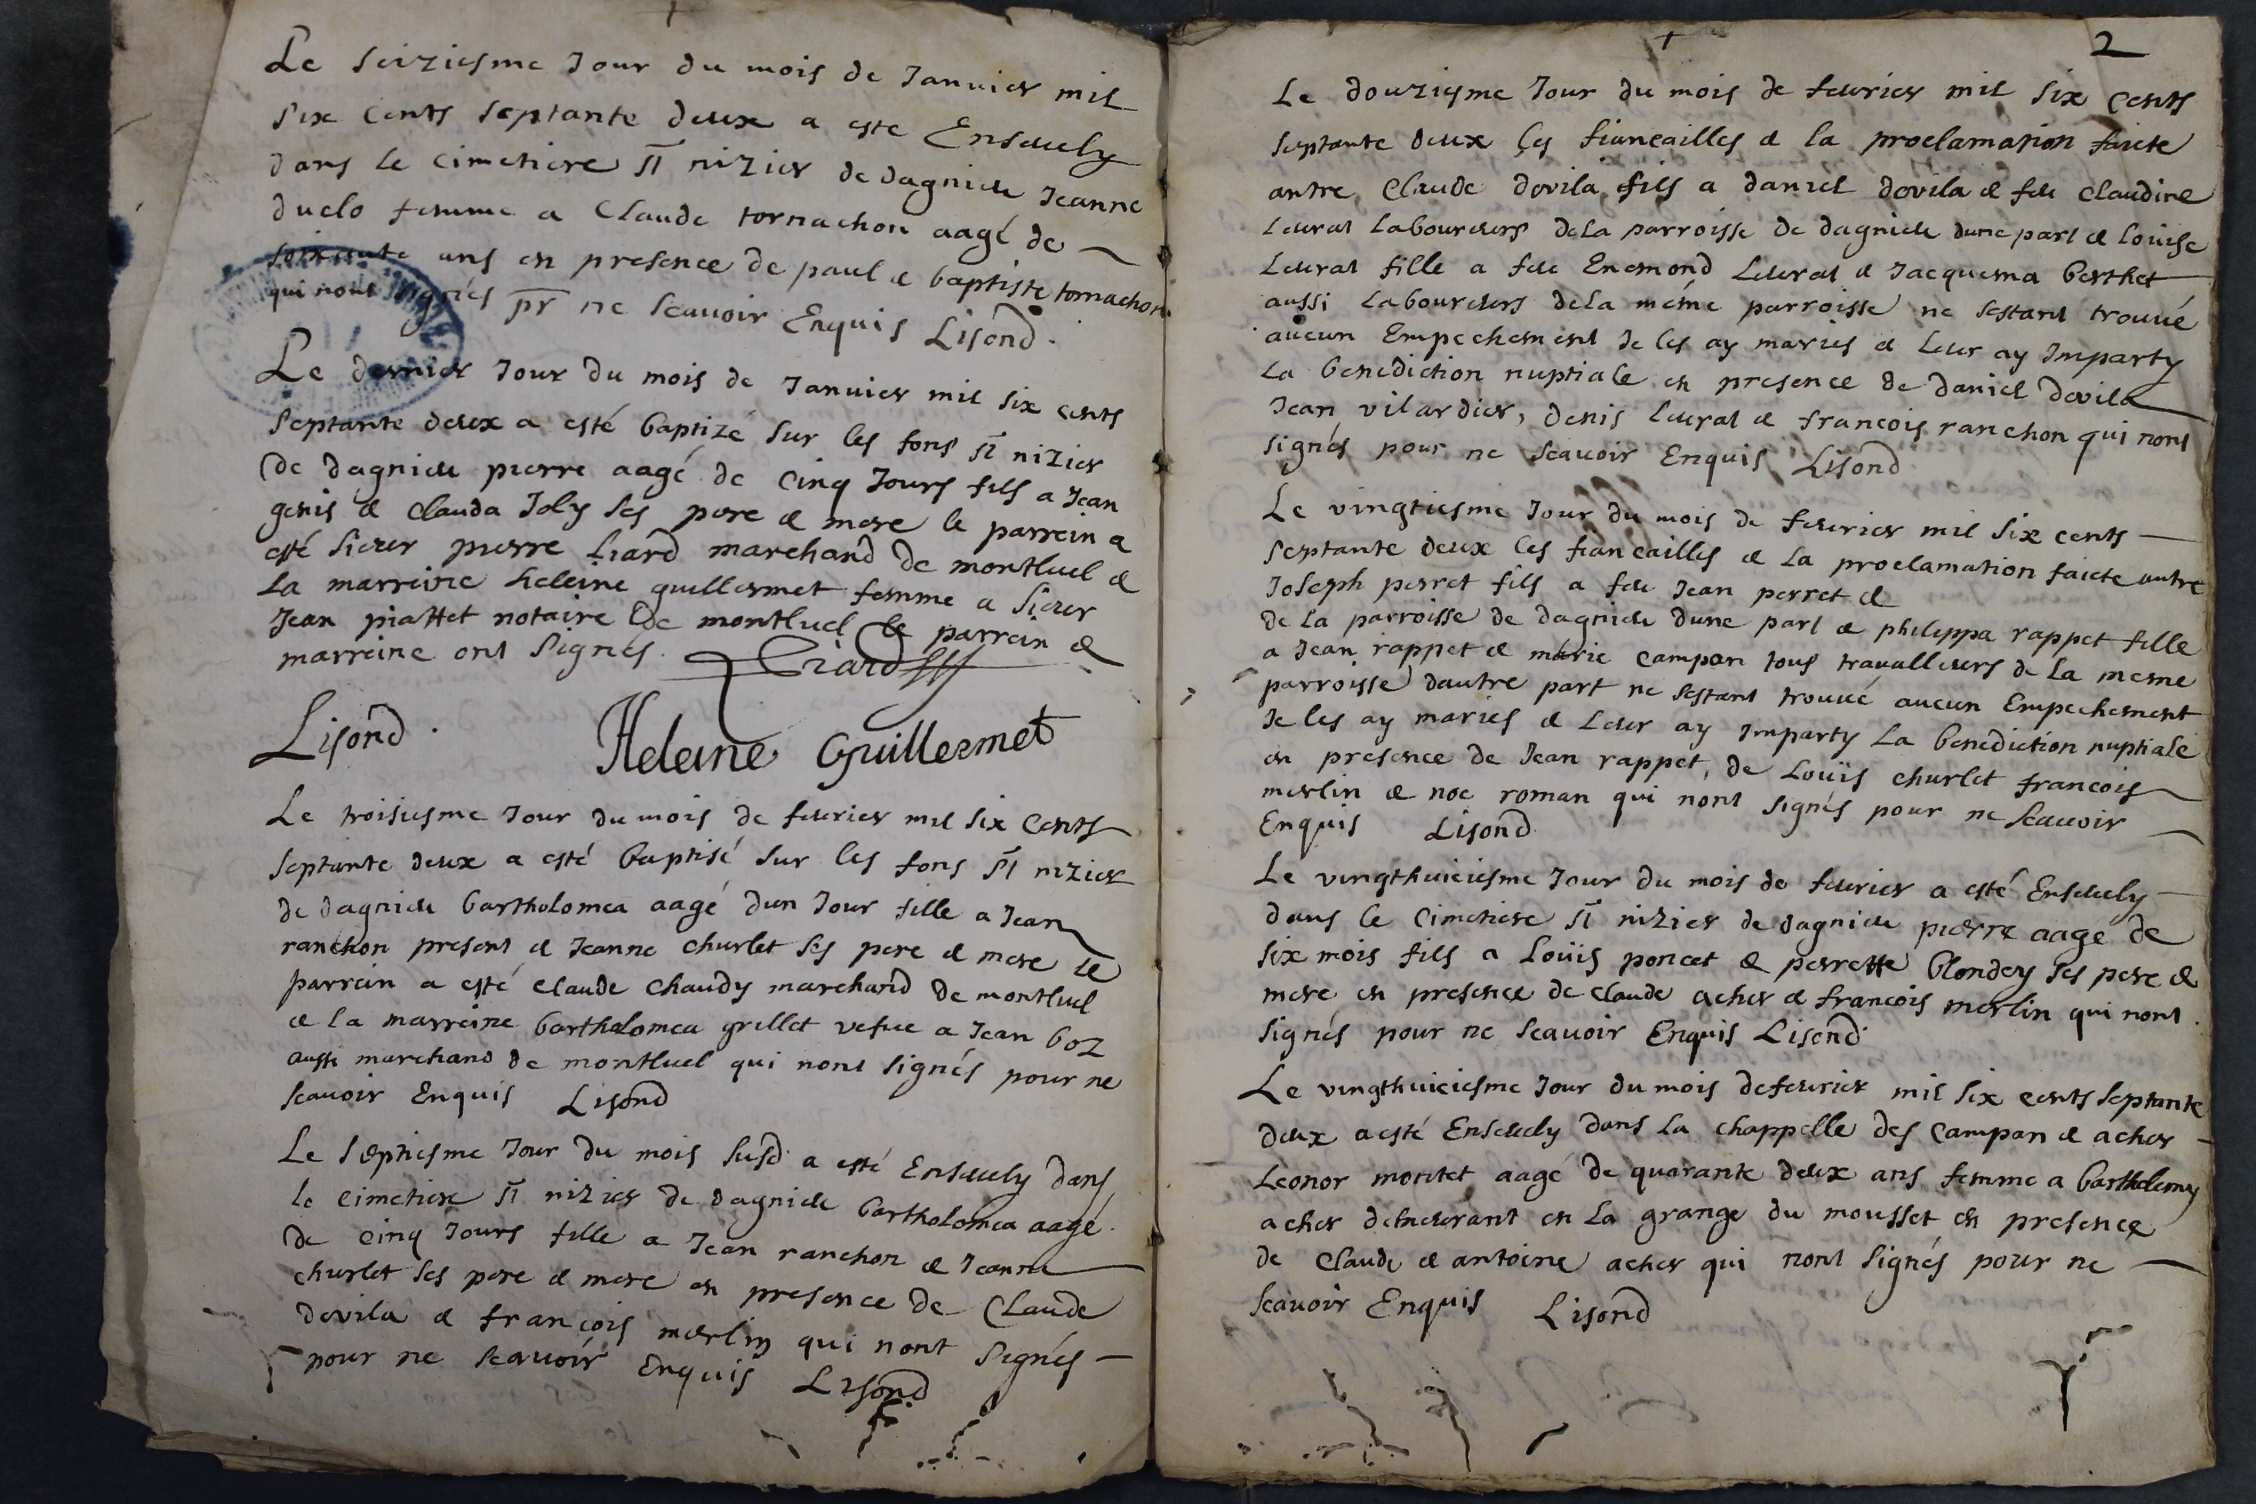 Le seiziesme Jour du mois de Januier mil
six cents septante deux a este Enseuely
dans le cimetiere st nizier de dagnieu Jeanne
duclo femme a Claude tornachon aagé de
soixante ans en presence de paul & baptiste tornachon
qui nont signés pr ne scauoir Enquis Lisond.
Le dernier Jour du mois de Januier mil six cents
septante deux a esté baptizé sur les fons st nizier
de dagnieu pierre aagé de cinq Jours fils a Jean
genis & clauda Joly ses pere & mere le parrein a
esté sieur pierre liard marchand de montluel &
la marreine heleine guillermet femme a sieur
Jean piattet notaire de montluel le parrein &
marreine ont signés.
Lisond. Heleine Guillermet
Le troisiesme Jour du mois de feurier mil six cents
septante deux a esté baptisé sur les fons st nizier
de dagnieu bartholomea aagé dun Jour fille a Jean
ranchon present & Jeanne churlet ses pere & mere le
parrein a esté claude chaudy marchand de montluel
& la marreine bartholomea grillet vefue a Jean boz
aussi marchand de montluel qui nont signés pour ne
scauoir Enquis Lisond
Le septiesme Jour du mois susd. a esté Enseuely dans
le cimetiere st nizier de dagnieu bartholomea aagé
de cinq Jours fille a Jean ranchon & Jeanne
churlet ses pere & mere en presence de Claude
dovila & françois merlin qui nont signés
pour ne scauoir Enquis Lisond
2
Le douziesme Jour du mois de feurier mil six cents
septante deux les fiancailles & la proclamation faicte
antre Claude dovila fils a daniel dovila & feu claudine
leurat laboureurs dela parroisse de dagnieu dune part & louise
leurat fille a feu Enemond leurat & Jacquema berthet
aussi laboureurs dela méme parroisse ne sestant trouué
aucun Empechement Je les ay mariés & leur ay Imparty
la benediction nuptiale en presence de daniel dovila
Jean vilardier, denis leurat & francois ranchon qui nont
signés pour ne scauoir Enquis Lisond
Le vingtiesme Jour du mois de feurier mil six cents
septante deux les fiancailles & la proclamation faicte antre
Joseph perret fils a feu Jean perret &
de la parroisse de dagnieu dune part & philippa rappet fille
a Jean rappet & marie campan tous trauallieurs de la meme
parroisse dautre part ne sestant trouué aucun Empechement
Je les ay mariés & leur ay Imparty la benediction nuptiale
en presence de Jean rappet, de Loüis churlet francois
merlin & noe roman qui nont signés pour ne scauoir
Enquis Lisond
Le vingthuiciesme Jour du mois de feurier a esté Enseuely
dans le cimetiere st nizier de dagnieu pierre aagé de
six mois fils a Loüis poncet & perrette blondey ses pere &
mere en presence de claude acher & francois merlin qui nont
signés pour ne scauoir Enquis Lisond.
Le vingthuiciesme Jour du mois de feurier mil six cents septante
deux a esté Enseuely dans la chappelle des campan & acher
Leonor montet aagé de quarante deux ans femme a barthelemy
acher demeurant en la grange du mousset en presence
de Claude & antoine acher qui nont signés pour ne
scauoir Enquis Lisond